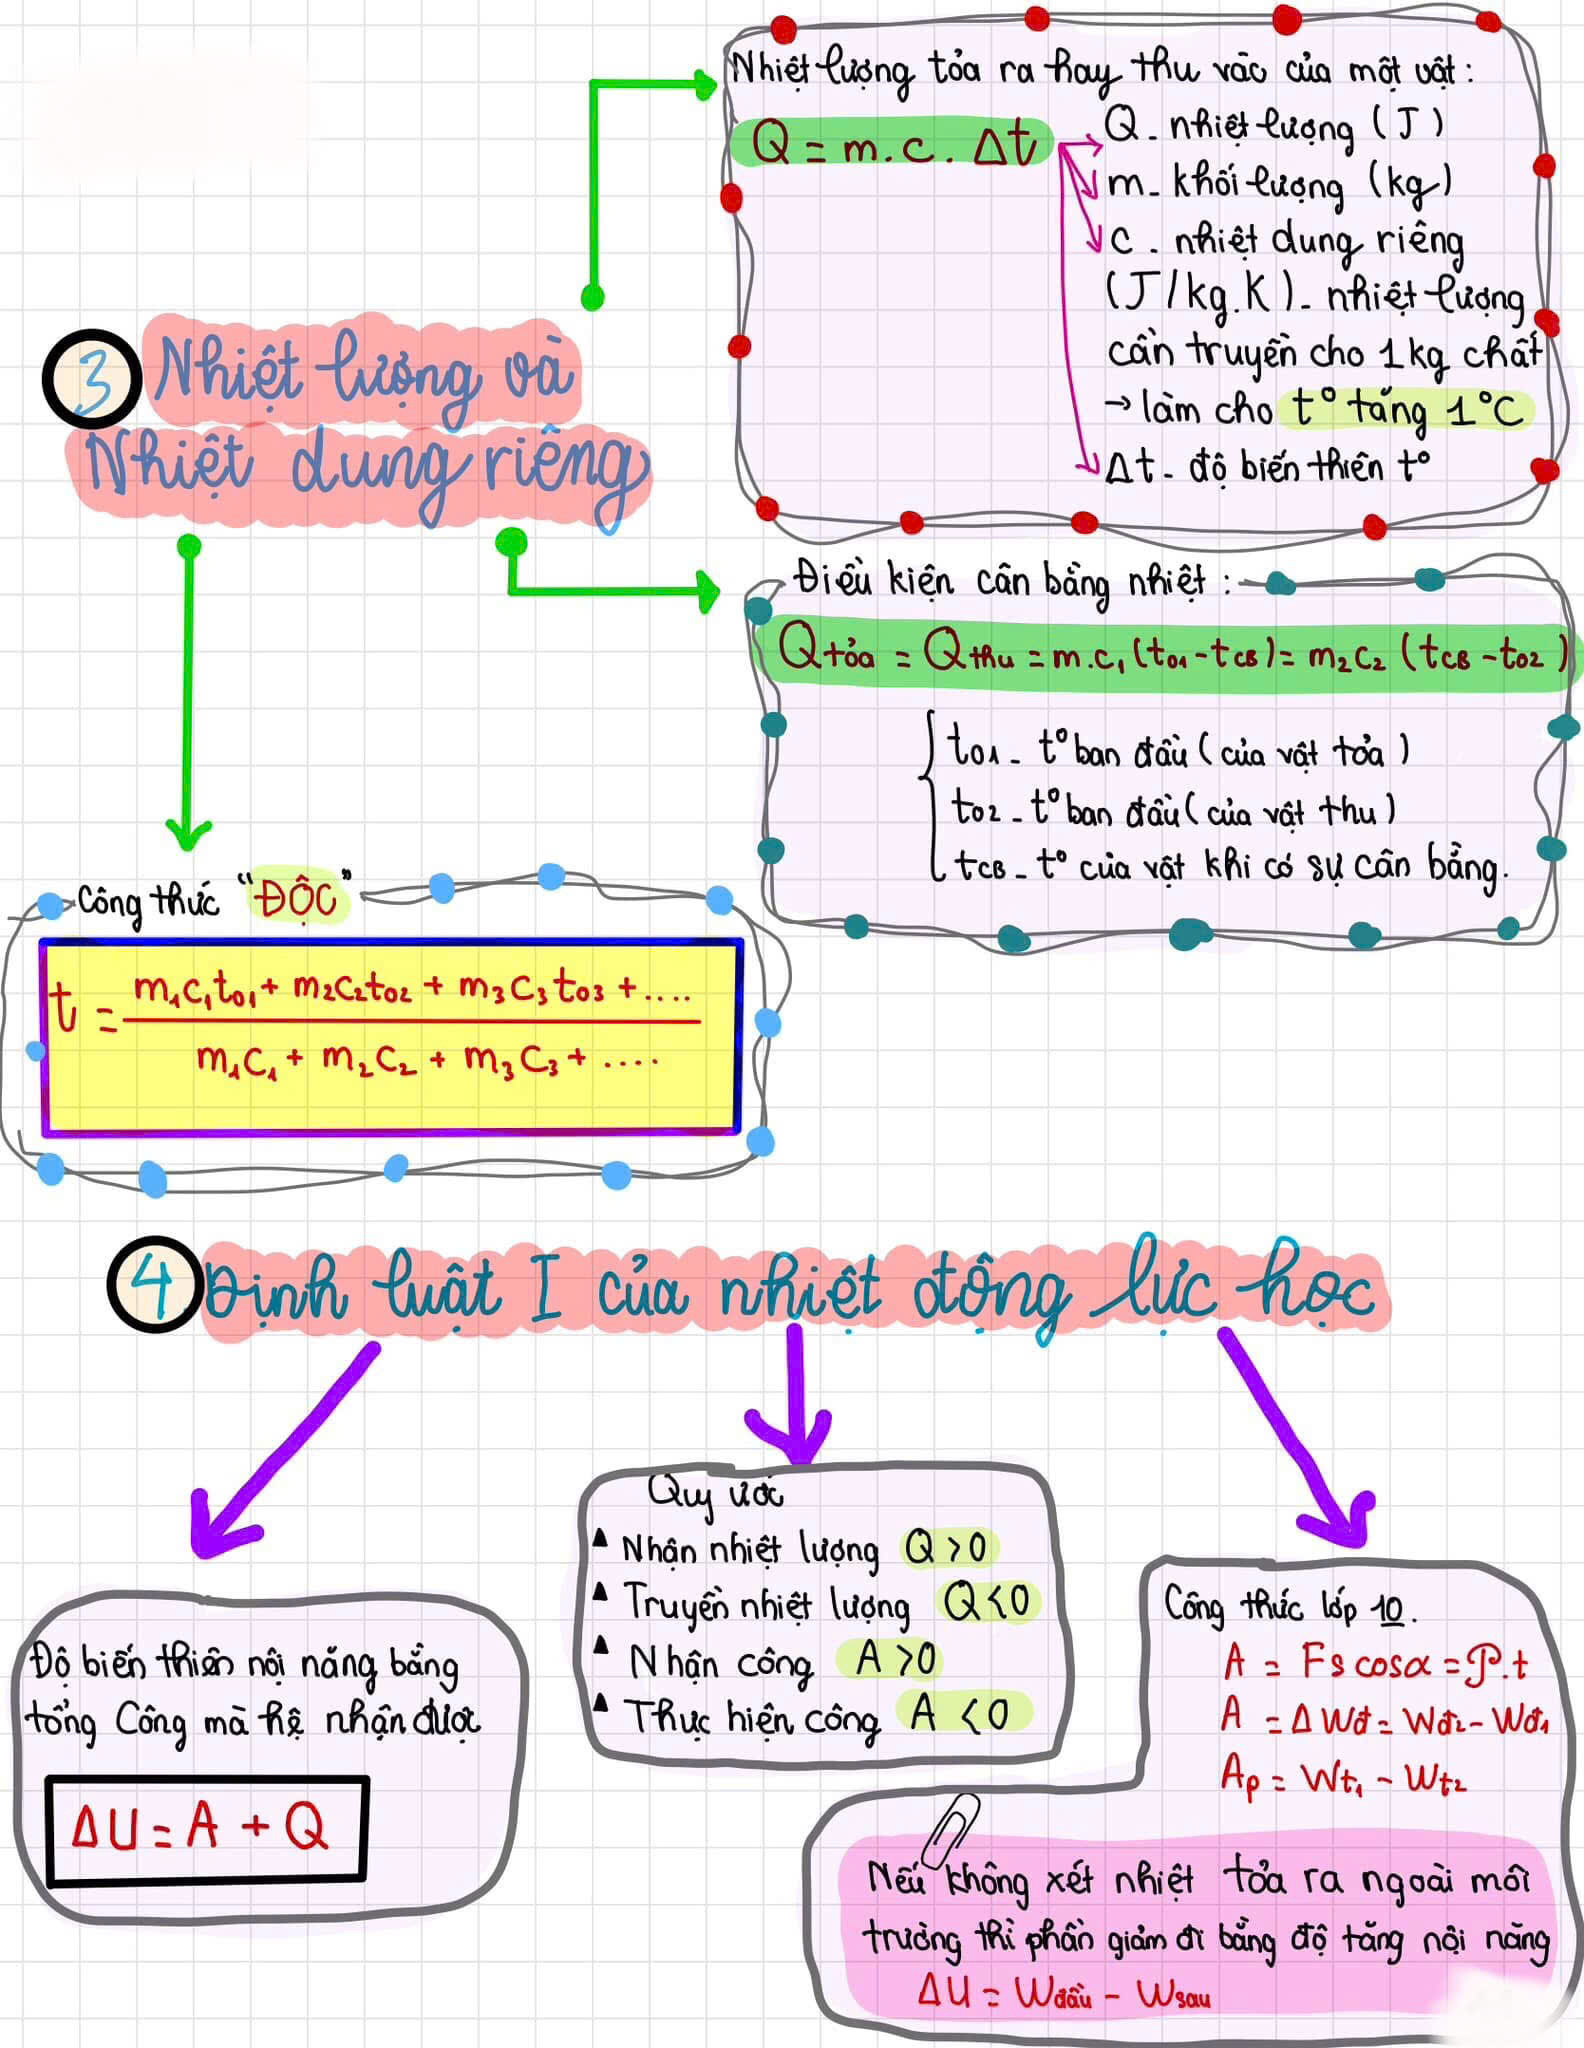 Nhiệt lượng tỏa ra hay thu vào của một vật:
Q = m.c. Δt
Q - nhiệt lượng (J)
m - khối lượng (kg)
c - nhiệt dung riêng
(J/kg.K) - nhiệt lượng
cần truyền cho 1kg chất
→ làm cho t° tăng 1°C
Δt - độ biến thiên t°
3 Nhiệt lượng và
Nhiệt dung riêng
Điều kiện cân bằng nhiệt:
Qtỏa = Qthu = m.c₁(t01-tCB) = m₂c₂(tCB-t02)
t01 - t° ban đầu (của vật tỏa)
t02 - t° ban đầu (của vật thu)
tCB - t° của vật khi có sự cân bằng.
Công thức "ĐỘC"
m₁c₁t01 + m₂c₂t02 + m₃c₃t03 + ....
t =
m₁c₁ + m₂c₂ + m₃c₃ + ....
4 Định luật I của nhiệt động lực học
Độ biến thiên nội năng bằng
tổng Công mà hệ nhận được
ΔU = A + Q
Quy ước
▲ Nhận nhiệt lượng Q > 0
▲ Truyền nhiệt lượng Q < 0
▲ Nhận công A > 0
▲ Thực hiện công A < 0
Công thức lớp 10.
A = Fs cosα = 𝒫.t
A = ΔWđ = Wđ₂ - Wđ₁
Ap = Wt₁ - Wt₂
Nếu không xét nhiệt tỏa ra ngoài môi
trường thì phần giảm đi bằng độ tăng nội năng
ΔU = Wđầu - Wsau